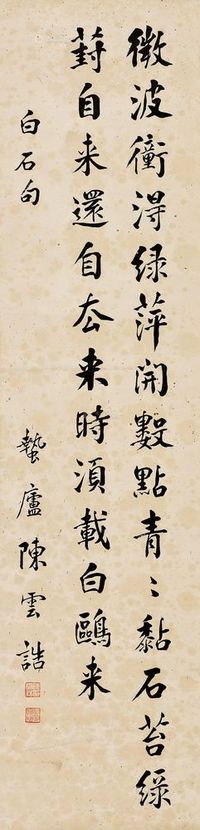 微波衝淂緑萍開數點青〻黏石苔緑
葑自来還自厺来時湏載白鷗来
白石句
蟄廬陳雲誥